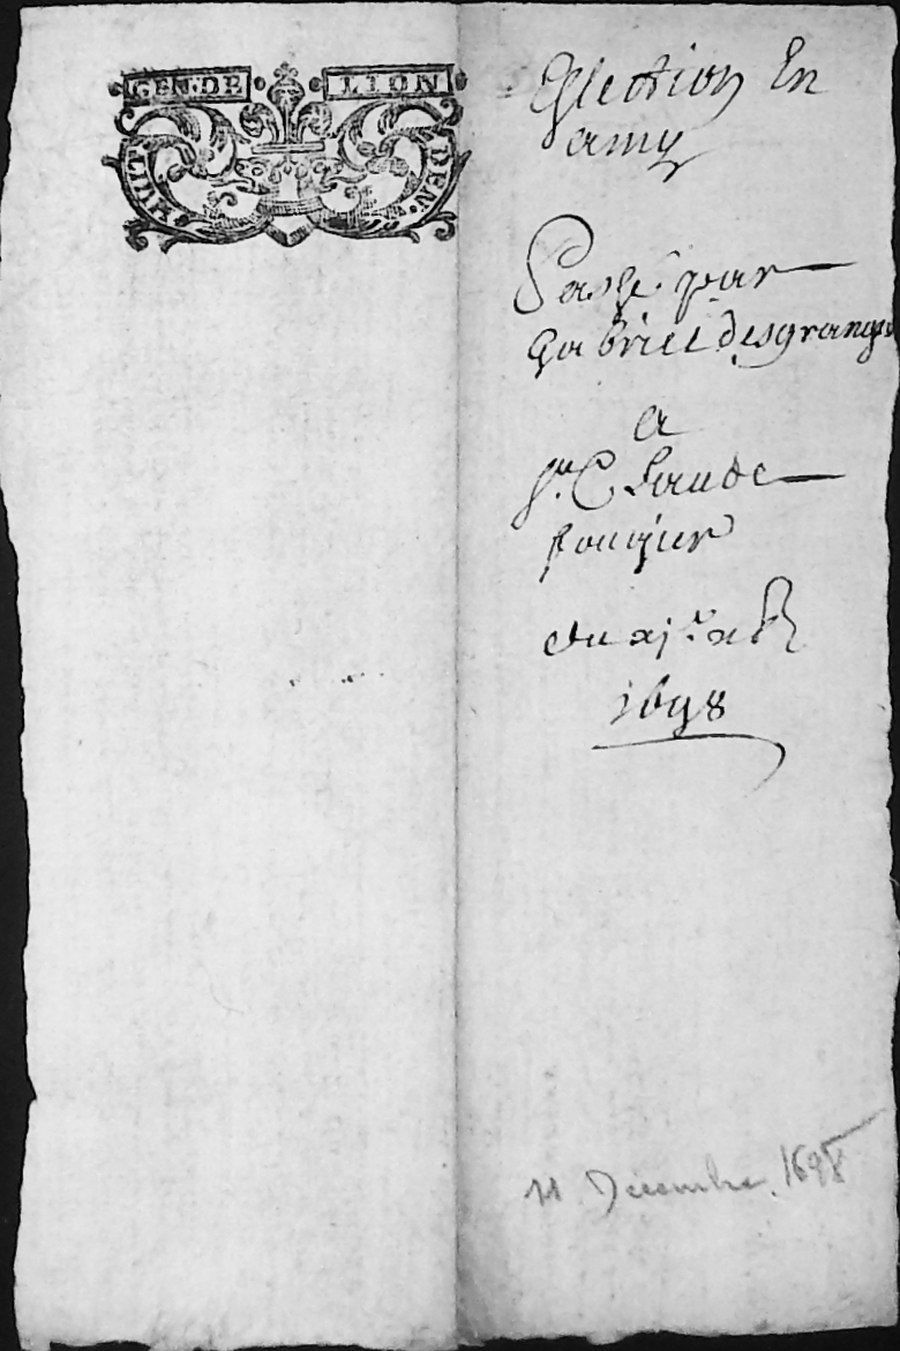 GEN·DE LION
HUIT DEN·
Eslection En
amy
Passé par
Gabriel desgranges
a
Sr. Claude
fougier
du xj.e xbr
1698
11 Décembre. 1698